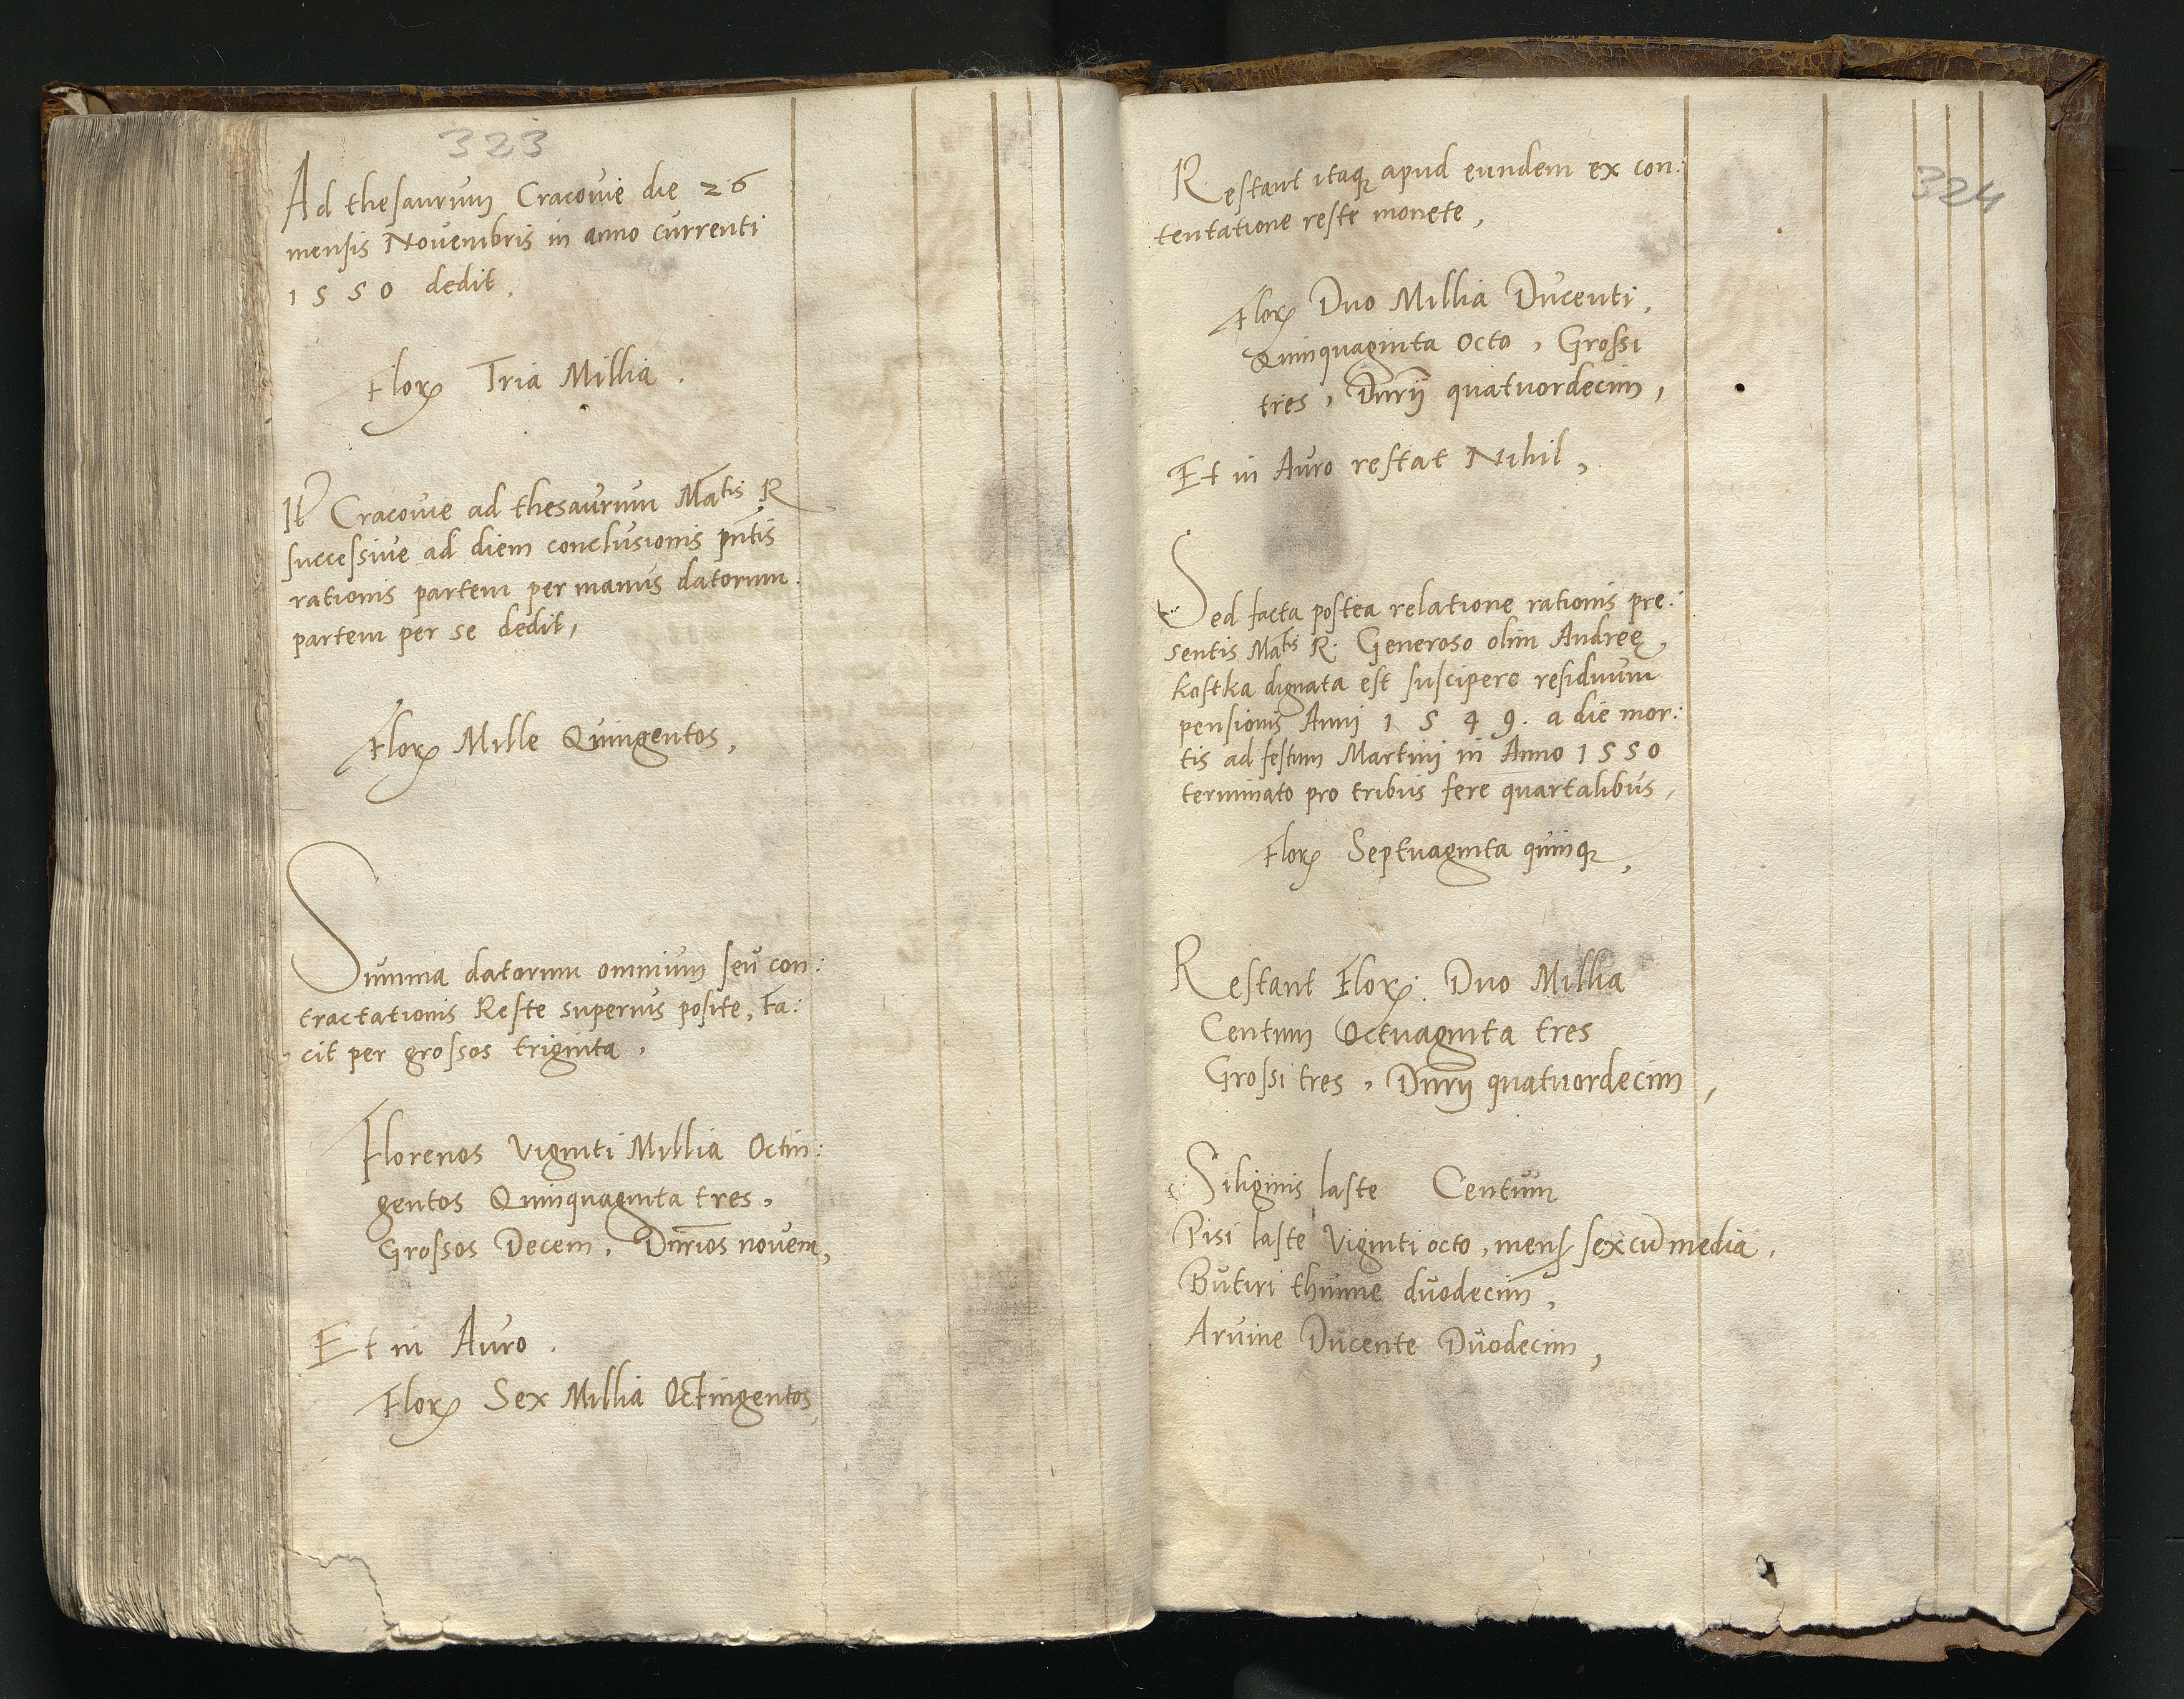 323
Ad thesaurum Cracovie die 26
mensis Novembris in anno currenti
1550 dedit.
Flor Tria Millia.
It Cracovie ad thesaurum Matis R
successive ad diem conclusionis pntis
rationis partem per manus datorum.
partem per se dedit,
Flor Mille Quingentos,
Summa datorum omnium seu con:
tractationis Reste superius posite, fa:
cit per grossos triginta.
Florenos Viginti Millia Octin:
gentos Quinquaginta tres,
Grossos Decem, Dnrios novem,
Et in Auro.
Flor Sex Millia Octingentos
324
Restant itaq apud eundem ex con:
tentatione reste monete,
Flor Duo Millia Ducenti,
Quinquaginta Octo, Grossi
tres, Dnrij quatuordecim,
Et in Auro restat Nihil,
Sed facta postea relatione rationis pre:
sentis Matis R. Generoso olim Andreę
Kostka dignata est suscipere residuum
pensionis Anni 1549. a die mor:
tis ad festum Martini in Anno 1550
terminato pro tribus fere quartalibus,
Flor Septuaginta quinq,
Restant Flor: Duo Millia
Centum Octuaginta tres
Grossi tres, Dnrij quatuordecim,
Siliginis laste Centum
Pisi laste Viginti octo, mens sex cu media,
Butiri thunne duodecim,
Arvine Ducente Duodecim,